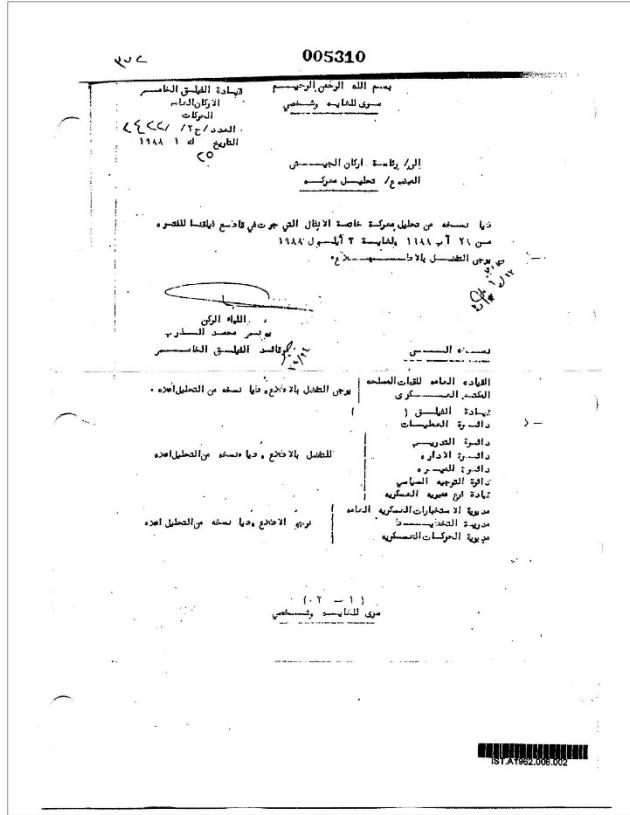 005310
بسم الله الرحمن الرحيم
سرى للغايه وشخصي
قيادة الفيلق الخامس
الاركان العامه
الحركات
العدد / ح٢ /
التاريخ ٢٥ ك ١ ١٩٨٨
إلى / رئاسة اركان الجيش
الموضوع / تحليل معركه
طيا نسخه من تحليل معركة خاتمة الانفال التي جرت في قاطع فيلقنا للفتره
من ٢٨ آب ١٩٨٨ ولغاية ٣ أيلول ١٩٨٨
يرجى التفضل بالاطلاع.
اللواء الركن
يونس محمد الذرب
قائد الفيلق الخامس
نسخه الى
القياده العامه للقوات المسلحه
المكتب العسكرى
يرجى التفضل بالاطلاع وطيا نسخه من التحليل اعلاه .
قيادة الفيلق ( )
دائرة العمليات
دائرة التدريب
دائرة الاداره
دائرة الميره
دائرة التوجيه السياسي
للتفضل بالاطلاع وطيا نسخه من التحليل اعلاه
مديرية الاستخبارات العسكريه العامه
مديرية التخطيط
مديرية الحركات العسكريه
نرجو الاطلاع وطيا نسخه من التحليل اعلاه
(١ - ٠٢)
سرى للغايه وشخصي
IST.A1962.006.002